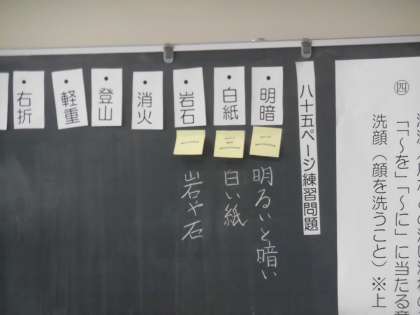 四
「〜を」「〜に」に当たる意
洗顔（顔を洗うこと）※上
八十五ページ練習問題
・明暗
二
明るいと暗い
・白紙
三
白い紙
・岩石
一
岩や石
・消火
・登山
・軽重
・右折